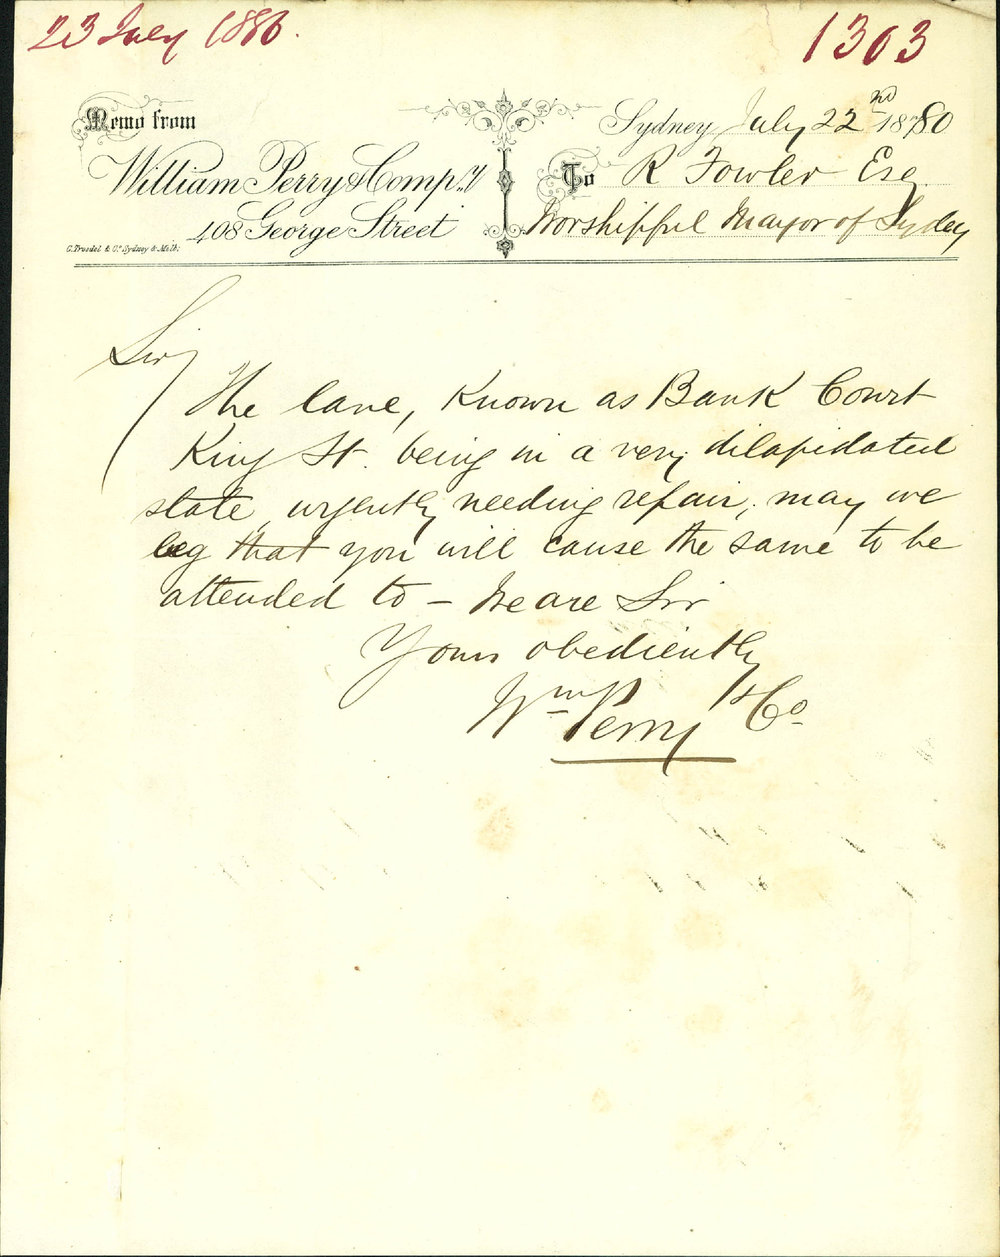 23 July 1880.
1303
Memo from
Sydney July 22nd 1880
William Perry & Compy
To R Fowler Esq
408 George Street
Worshipful Mayor of Sydney
Sir
The lane, known as Bank Court
King St. being in a very dilapidated
state, urgently needing repair, may we
beg that you will cause the same to be
attended to - We are Sir
Yours obediently
Wm Perry & Co